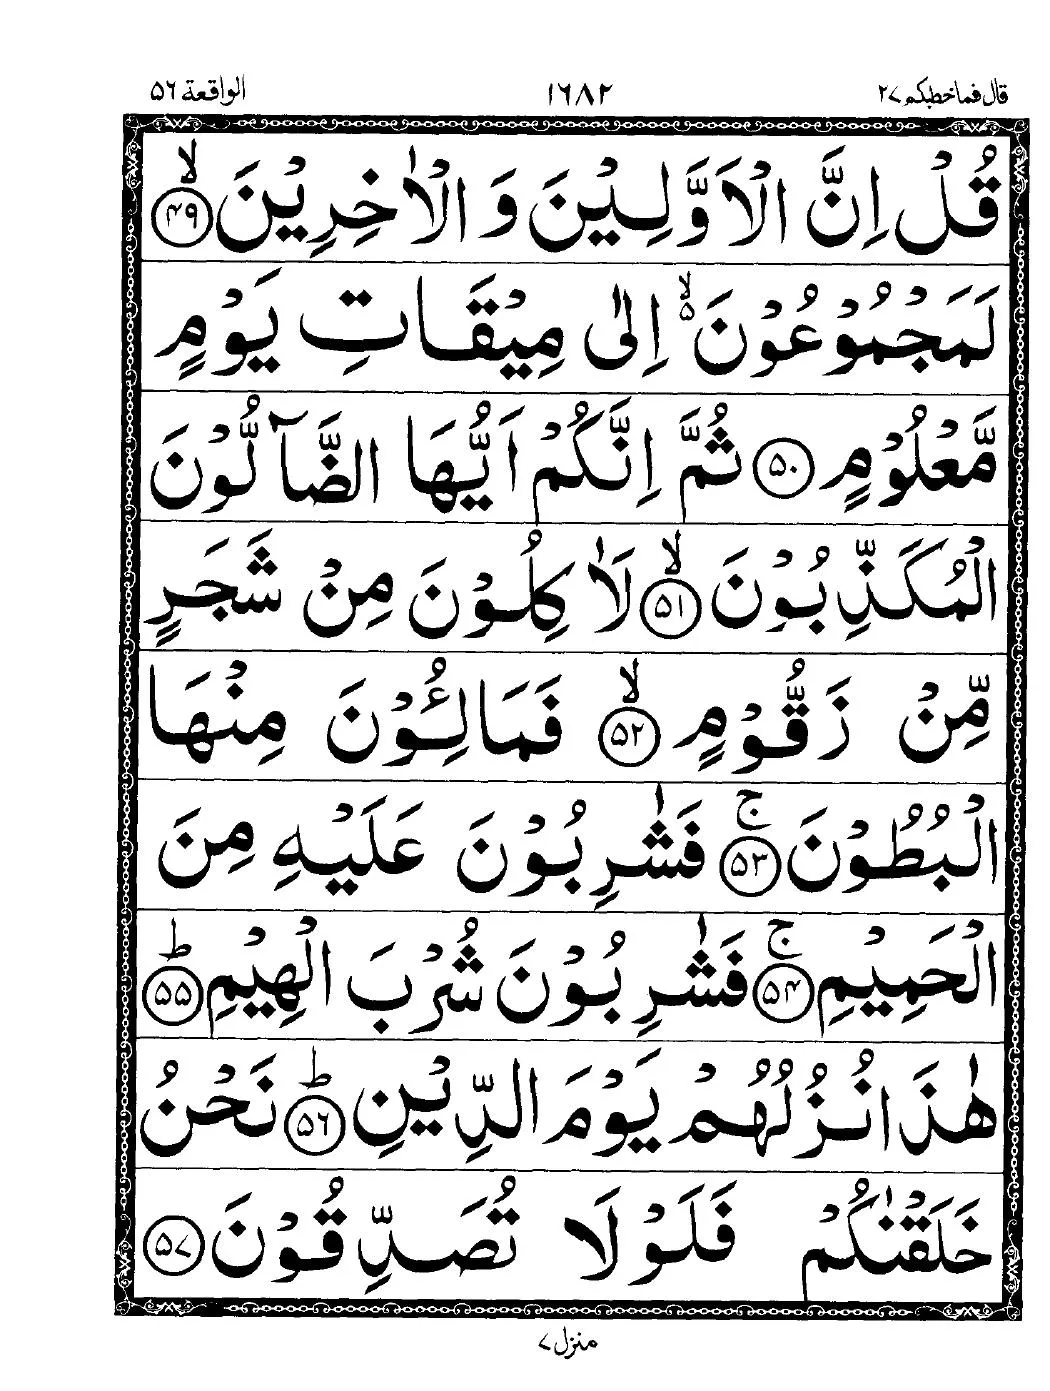 قال فماخطبكم ٢٧ ١٦٨٢ الواقعة ٥٦
قُلْ اِنَّ الْاَوَّلِيْنَ وَ الْاٰخِرِيْنَ ۙ﴿۴۹﴾
لَمَجْمُوْعُوْنَ ۙ۬ اِلٰى مِيْقَاتِ يَوْمٍ
مَّعْلُوْمٍ ﴿۵۰﴾ ثُمَّ اِنَّكُمْ اَيُّهَا الضَّآلُّوْنَ
الْمُكَذِّبُوْنَ ۙ﴿۵۱﴾ لَاٰكِلُوْنَ مِنْ شَجَرٍ
مِّنْ زَقُّوْمٍ ۙ﴿۵۲﴾ فَمَالِـُٔوْنَ مِنْهَا
الْبُطُوْنَ ۚ﴿۵۳﴾ فَشٰرِبُوْنَ عَلَيْهِ مِنَ
الْحَمِيْمِ ۚ﴿۵۴﴾ فَشٰرِبُوْنَ شُرْبَ الْهِيْمِ ؕ﴿۵۵﴾
هٰذَا نُزُلُهُمْ يَوْمَ الدِّيْنِ ؕ﴿۵۶﴾ نَحْنُ
خَلَقْنٰكُمْ فَلَوْ لَا تُصَدِّقُوْنَ ﴿۵۷﴾
منزل ٧